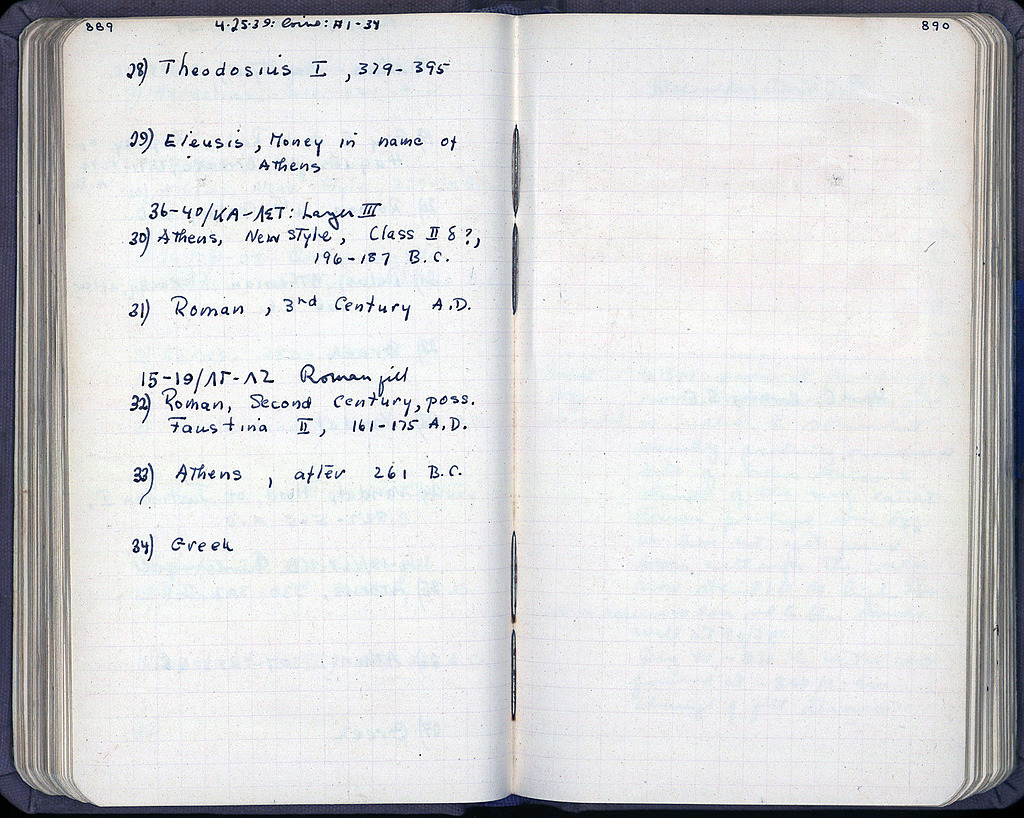 889
4.25.39: Coins: #1-34
28) Theodosius I, 379-395
29) Eleusis, Money in name of
Athens
36-40/ΚΑ-ΛΣΤ: Layer III
30) Athens, New Style, Class II δ?,
196-187 B.C.
31) Roman, 3rd Century A.D.
15-19/ΛΓ-ΛΖ Roman fill
32) Roman, Second Century, poss.
Faustina II, 161-175 A.D.
33) Athens, after 261 B.C.
34) Greek
890